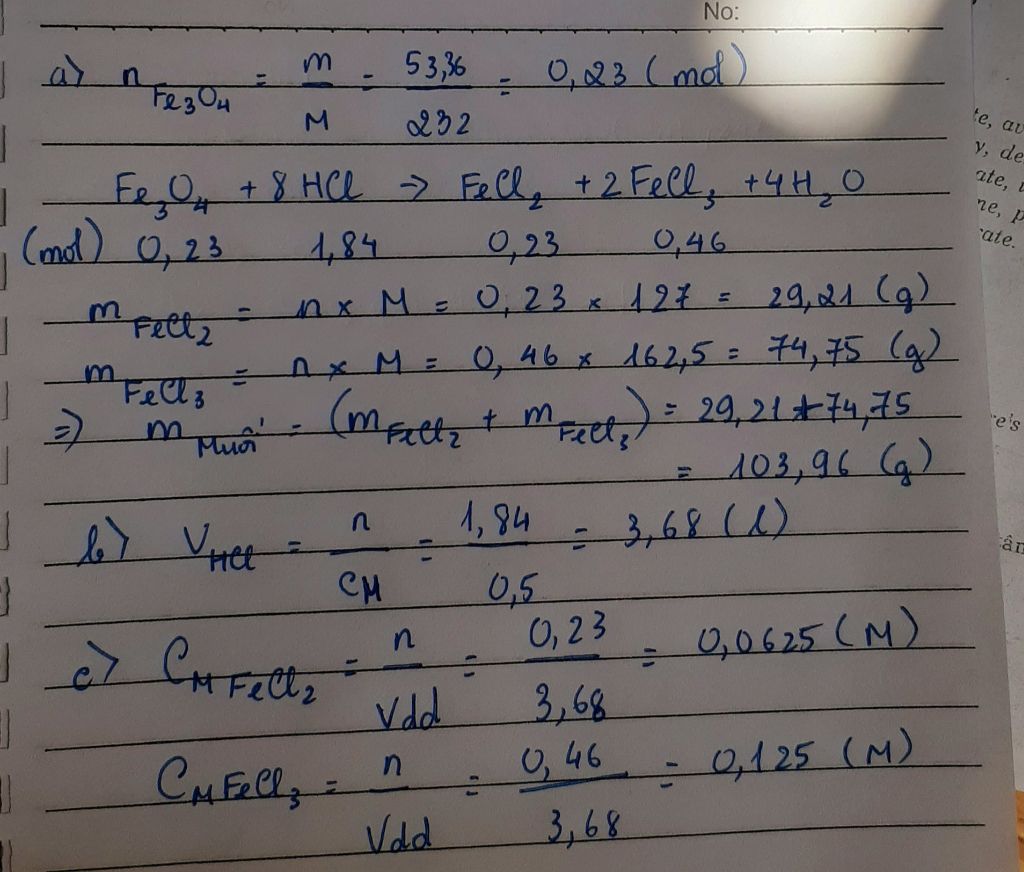 No:
a) n Fe3O4 = m/M = 53,36/232 = 0,23 (mol)
Fe3O4 + 8HCl → FeCl2 + 2FeCl3 + 4H2O
(mol) 0,23 1,84 0,23 0,46
m FeCl2 = n x M = 0,23 x 127 = 29,21 (g)
m FeCl3 = n x M = 0,46 x 162,5 = 74,75 (g)
=> m Muối = (m FeCl2 + m FeCl3) = 29,21 + 74,75
= 103,96 (g)
b) V HCl = n/CM = 1,84/0,5 = 3,68 (l)
c) CM FeCl2 = n/Vdd = 0,23/3,68 = 0,0625 (M)
CM FeCl3 = n/Vdd = 0,46/3,68 = 0,125 (M)